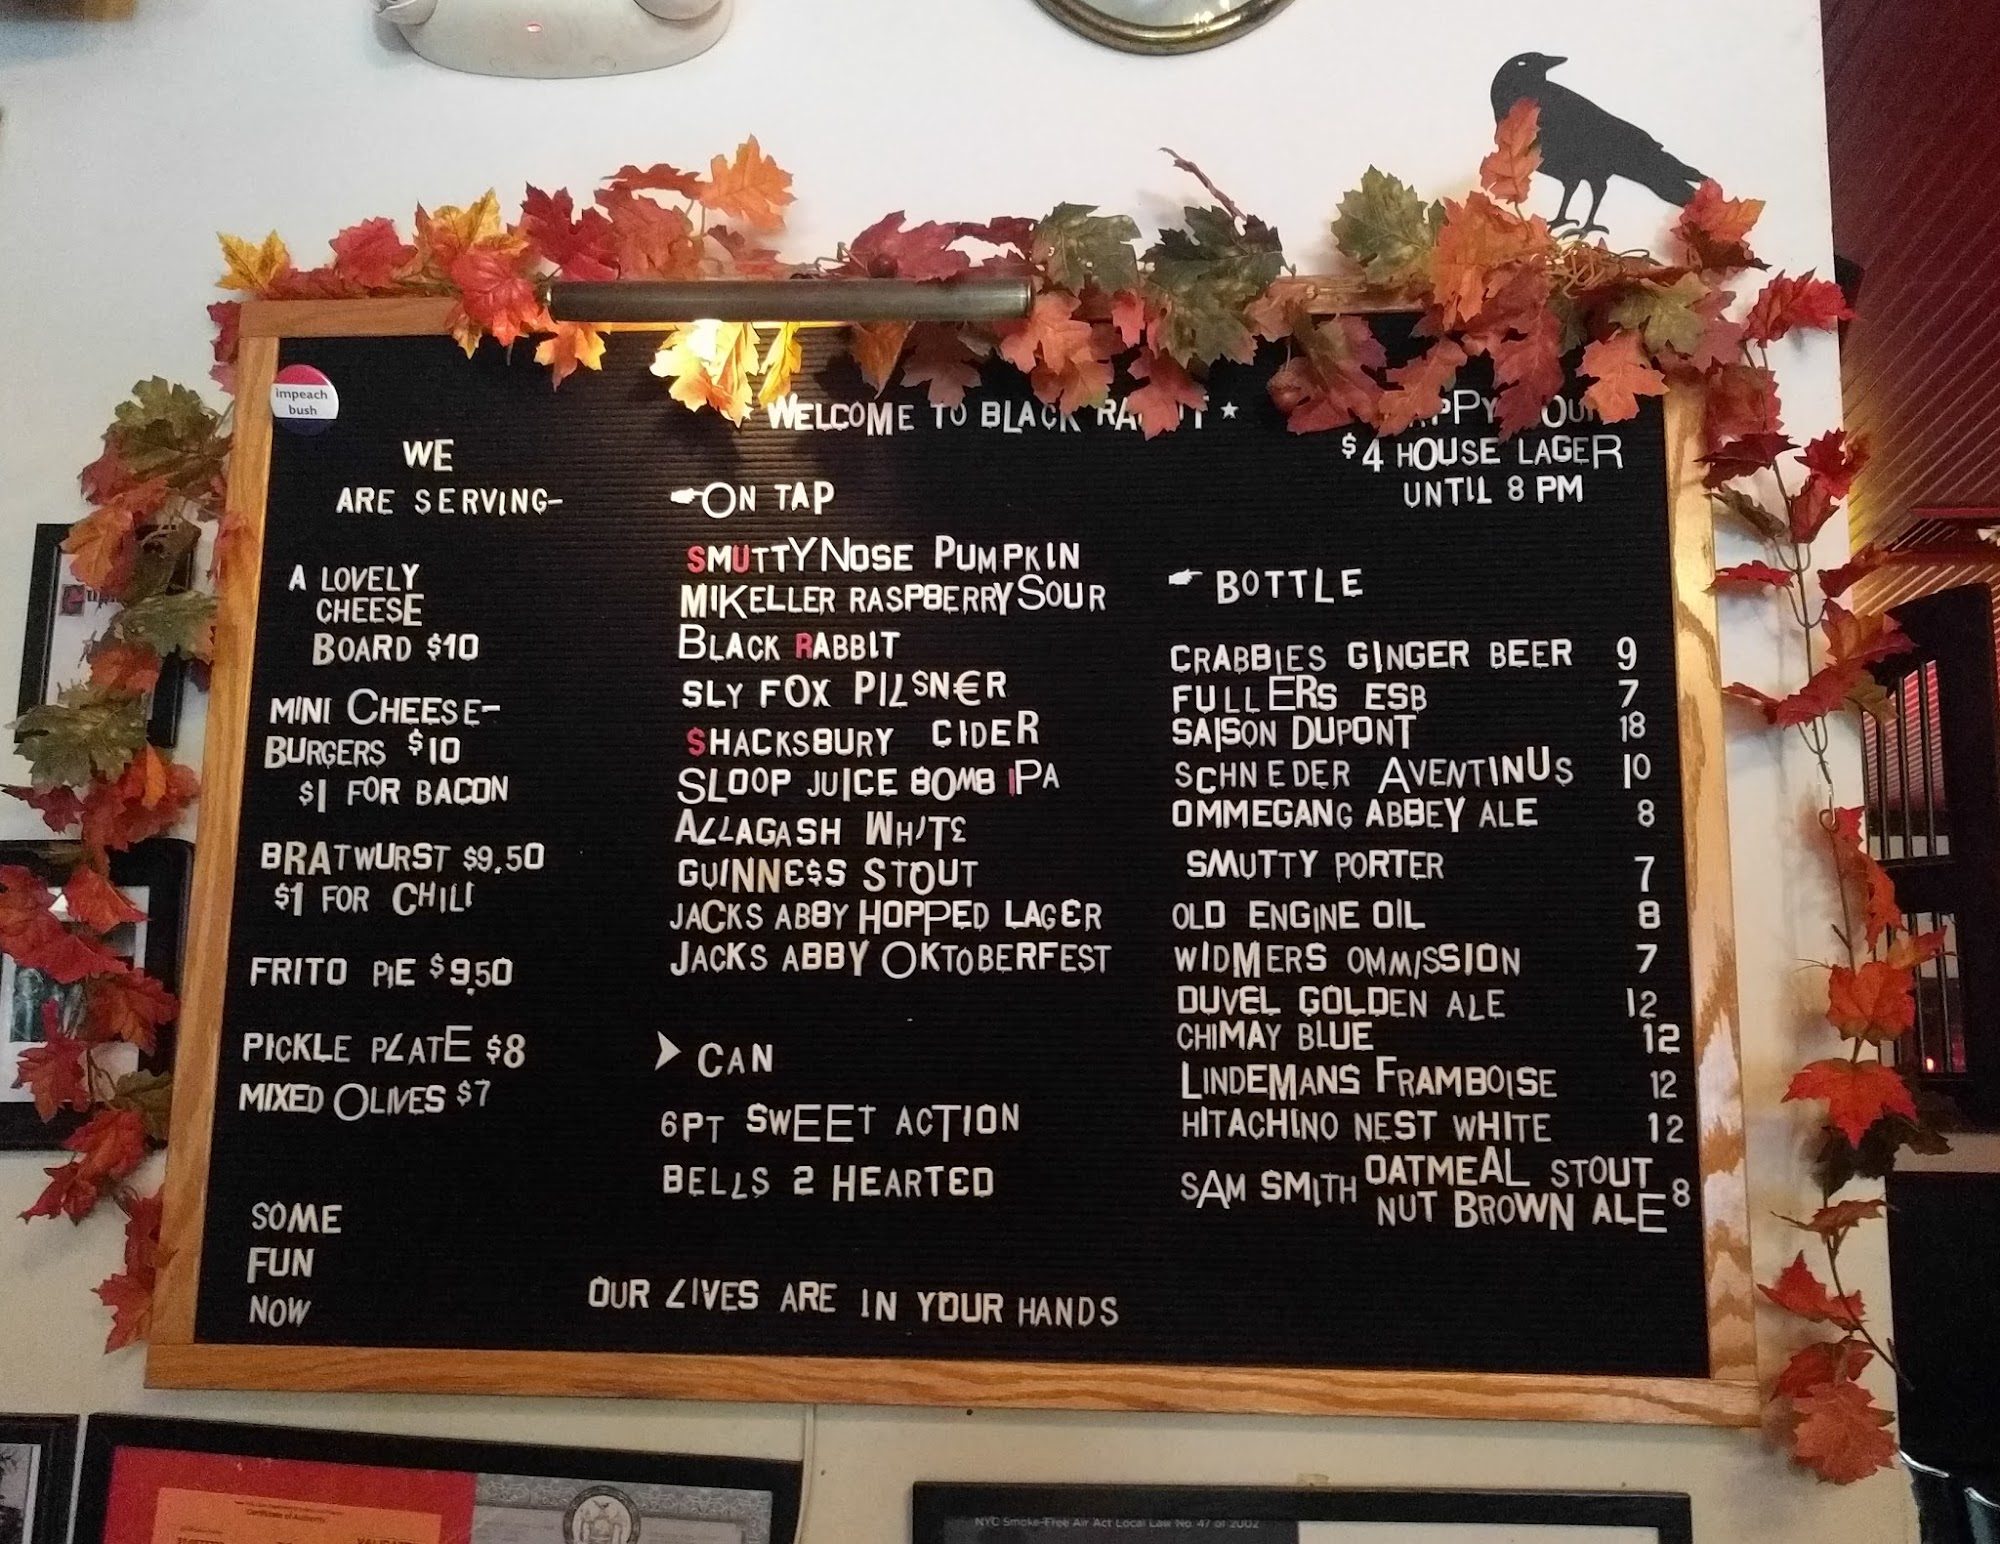 impeach
bush
WELCOME TO BLACK
$4 HOUSE LAGER
UNTIL 8 PM
WE
ARE SERVING-
A LOVELY
CHEESE
BOARD $10
MINI CHEESE-
BURGERS $10
$1 FOR BACON
BRATWURST $9.50
$1 FOR CHILI
FRITO PIE $9.50
PICKLE PLATE $8
MIXED OLIVES $7
SOME
FUN
NOW
ON TAP
SMUTTYNOSE PUMPKIN
MIKELLER RASPBERRY SOUR
BLACK RABBIT
SLY FOX PILSN€R
$HACKSBURY CIDER
SLOOP JUICE BOMB IPA
ALLAGASH WHITE
GUINNE$S STOUT
JACKS ABBY HOPPED LAGER
JACKS ABBY OKTOBERFEST
CAN
6PT SWEET ACTION
BELLS 2 HEARTED
OUR LIVES ARE IN YOUR HANDS
BOTTLE
CRABBIES GINGER BEER 9
FULLERS ESB 7
SAISON DUPONT 18
SCHNEDER AVENTINUS 10
OMMEGANG ABBEY ALE 8
SMUTTY PORTER 7
OLD ENGINE OIL 8
WIDMERS OMMISSION 7
DUVEL GOLDEN ALE 12
CHIMAY BLUE 12
LINDEMANS FRAMBOISE 12
HITACHINO NEST WHITE 12
SAM SMITH OATMEAL STOUT
NUT BROWN ALE 8
Certificate of Authority
NYC Smoke-Free Air Act Local Law No. 47 of 2002